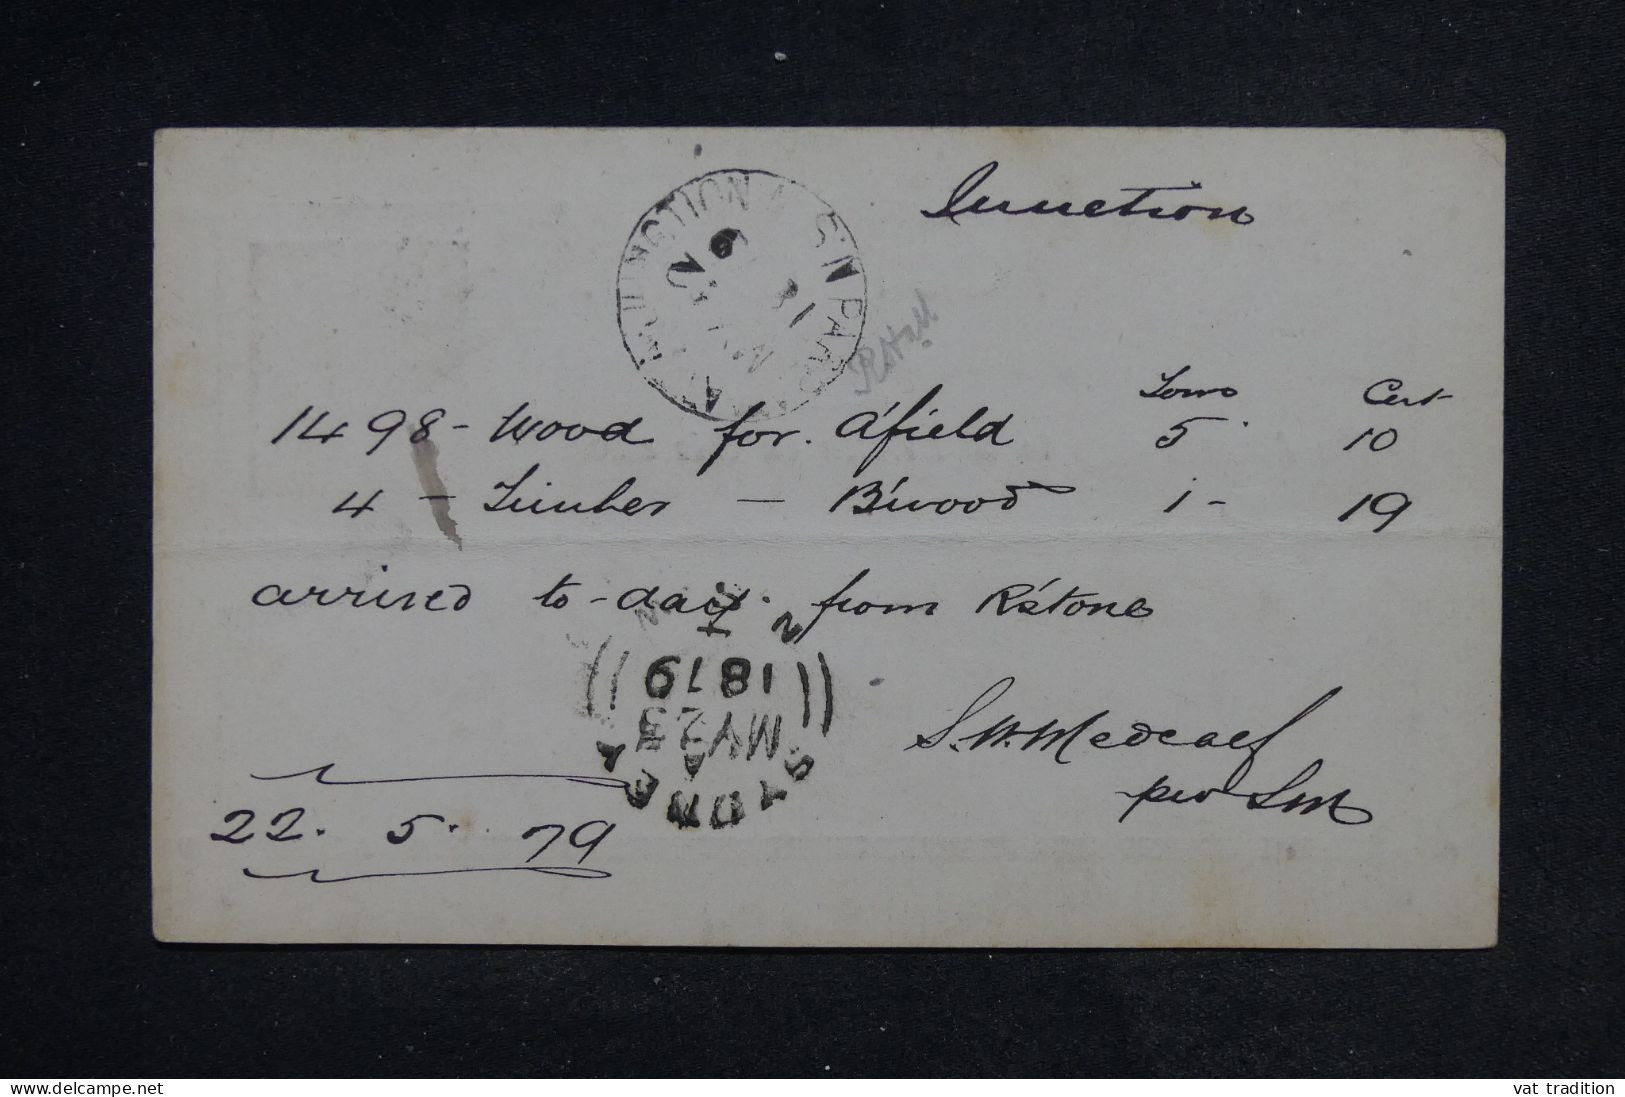 Junction
Tons Cwt
1498 - Wood for. A'field 5 10
4 - Timber - B'wood 1 - 19
arrived to-day. from R'stone
S. W. Medcalf
per SM
22. 5. 79
JUNCTION
1879
MY 23
A
www.delcampe.net
vat tradition